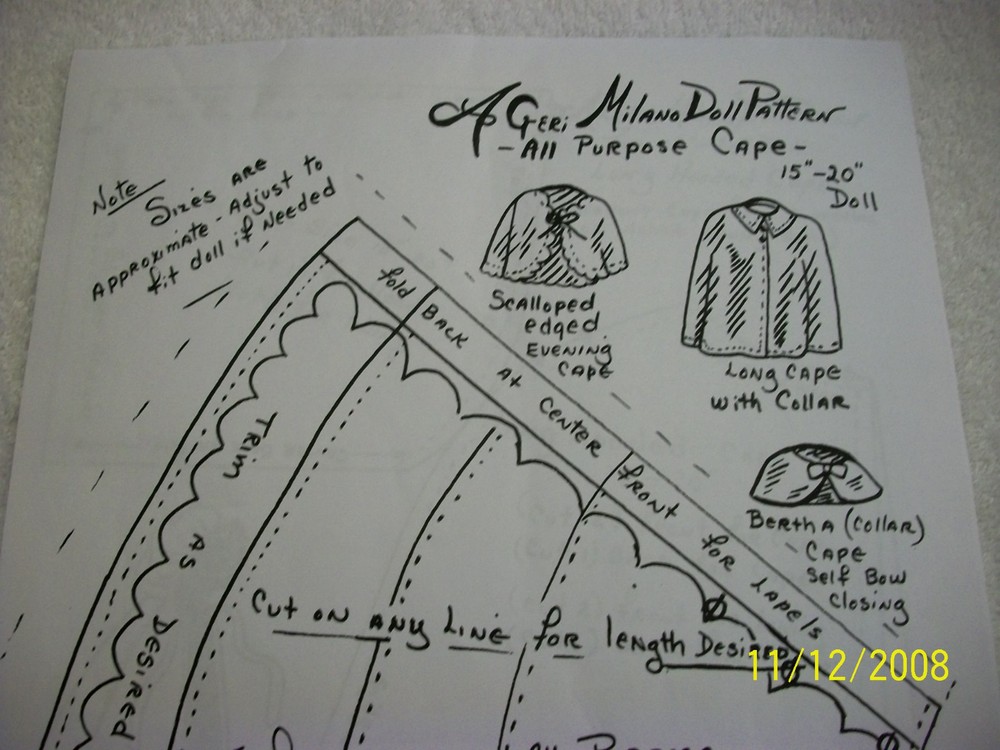 A Geri Milano Doll Pattern
- All Purpose Cape -
15"-20"
Doll
Note
Sizes are
approximate - Adjust to
fit doll if needed
Scalloped
edged
Evening
Cape
Long Cape
with Collar
Bertha (collar)
Cape
Self Bow
Closing
fold Back at center front for lapels
Trim as Desired
Cut on any Line for length Desired
11/12/2008